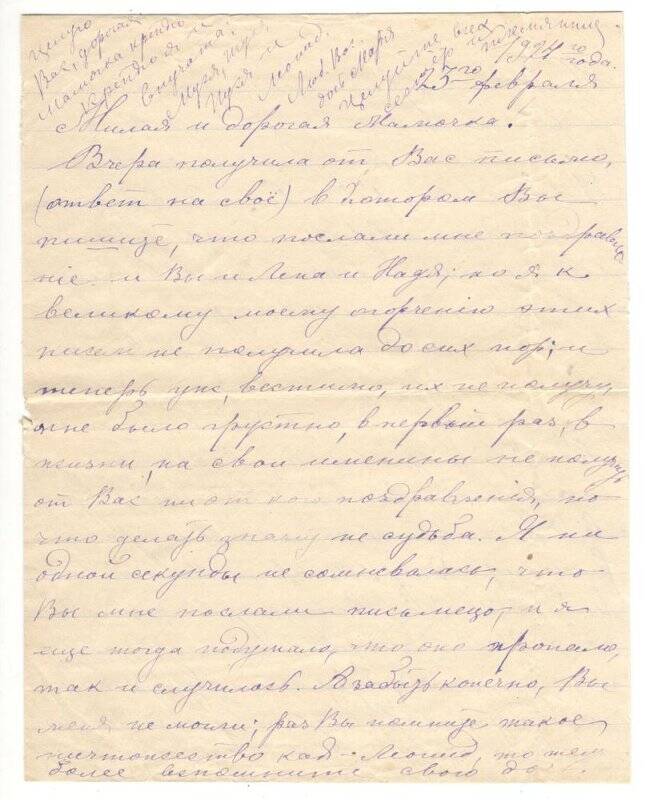 Целую
Вас, дорогая
Мамочка крепко
Крепко я и
внучата:
Муза, Туся,
Нуся и
Монад.
Люб. Вас
дочь Маря
Целуйте всех
сестёр и племянниц.
1924 го года.
23го февраля
Милая и дорогая Мамочка.
Вчера получила от Вас письмо,
(ответ на своё) в котором Вы
пишите, что послали мне поздравле-
ніе и Вы и Лена и Надя; но я к
великому моему огорченію этих
писем не получила до сих пор; и
теперь уж, вестимо, их не получу,
мне было грустно, в первый раз, в
жизни, на свои именины не получить
от Вас никакого поздравленія, но
что делать значит не судьба. Я ни
одной секунды не сомневалась, что
Вы мне послали письмецо, и я
еще тогда подумала, что оно пропало,
так и случилось. А забыть конечно, Вы
меня не могли; раз Вы помните такое
ничтожество как Леонид, то тем
более вспомните свою